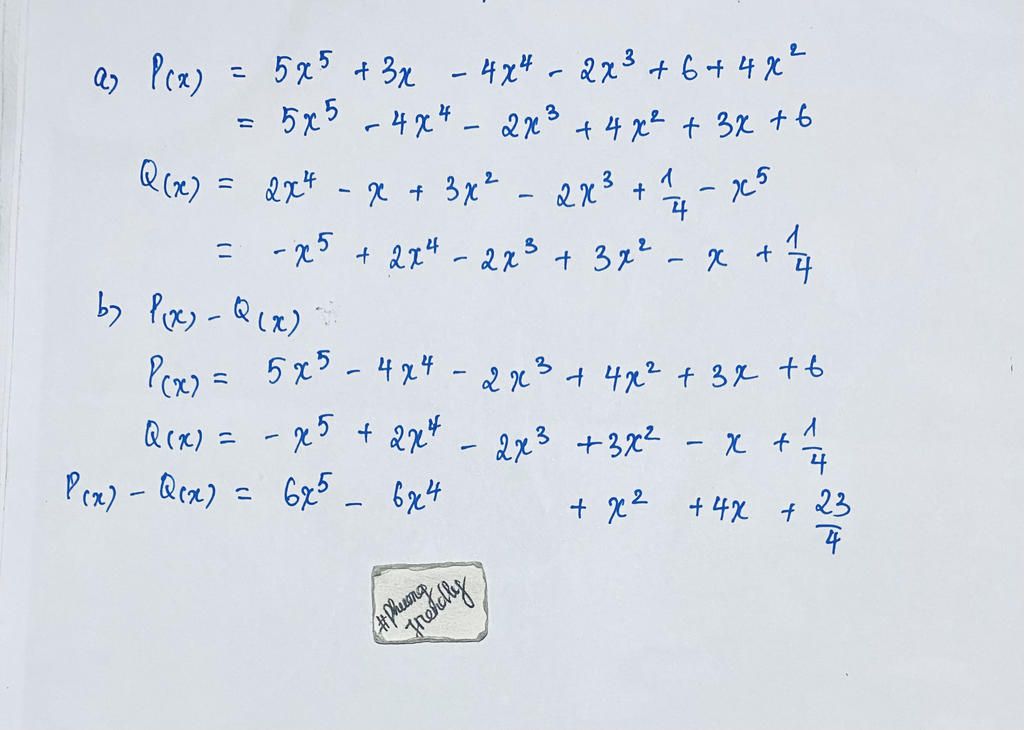 a) P(x) = 5x⁵ + 3x - 4x⁴ - 2x³ + 6 + 4x²
= 5x⁵ - 4x⁴ - 2x³ + 4x² + 3x + 6
Q(x) = 2x⁴ - x + 3x² - 2x³ + 1/4 - x⁵
= -x⁵ + 2x⁴ - 2x³ + 3x² - x + 1/4
b) P(x) - Q(x)
P(x) = 5x⁵ - 4x⁴ - 2x³ + 4x² + 3x + 6
Q(x) = -x⁵ + 2x⁴ - 2x³ + 3x² - x + 1/4
P(x) - Q(x) = 6x⁵ - 6x⁴ + x² + 4x + 23/4
#Phuong